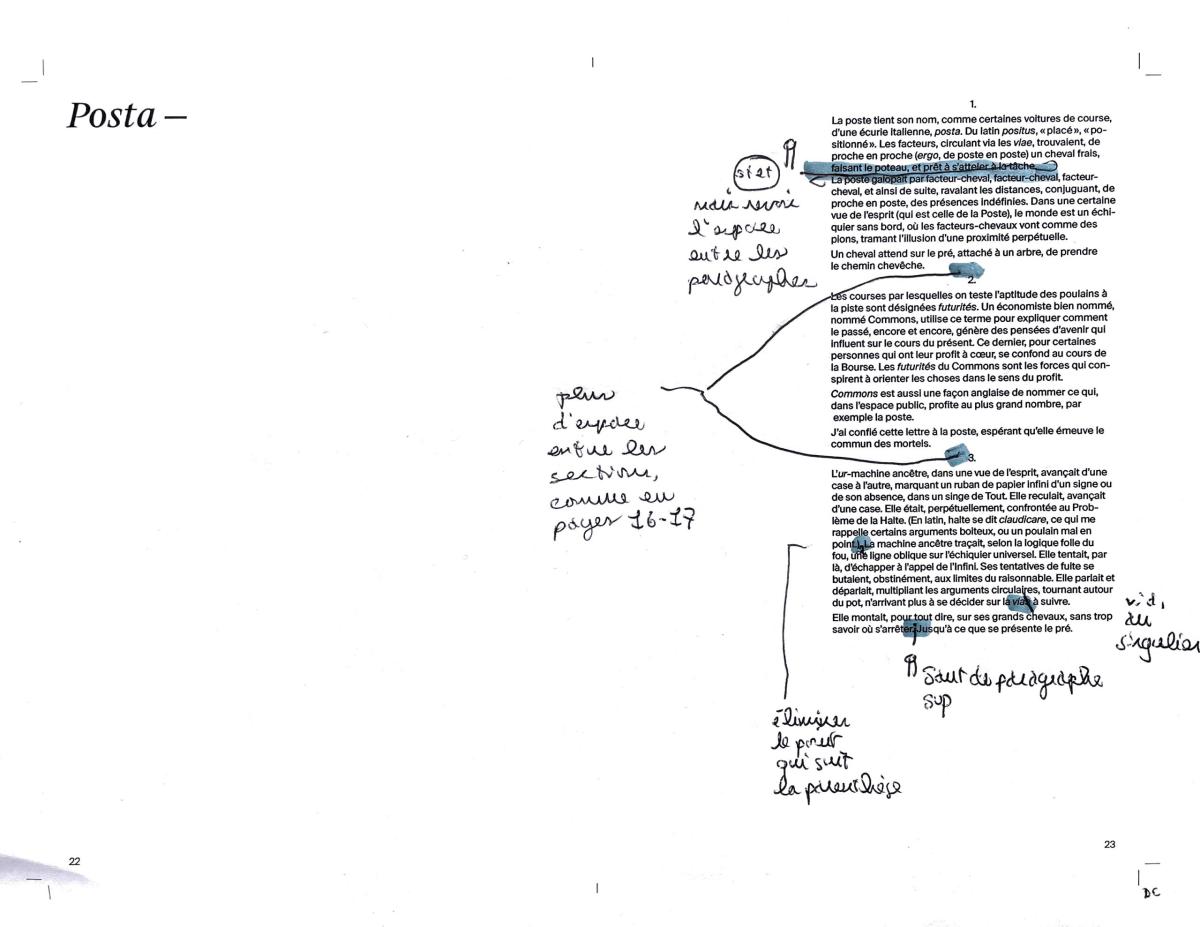 Posta —
1.
La poste tient son nom, comme certaines voitures de course,
d'une écurie italienne, posta. Du latin positus, « placé », « po-
sitionné ». Les facteurs, circulant via les viae, trouvaient, de
proche en proche (ergo, de poste en poste) un cheval frais,
faisant le poteau, et prêt à s'atteler à la tâche.
La poste galopait par facteur-cheval, facteur-cheval, facteur-
cheval, et ainsi de suite, ravalant les distances, conjuguant, de
proche en poste, des présences indéfinies. Dans une certaine
vue de l'esprit (qui est celle de la Poste), le monde est un échi-
quier sans bord, où les facteurs-chevaux vont comme des
pions, tramant l'illusion d'une proximité perpétuelle.
Un cheval attend sur le pré, attaché à un arbre, de prendre
le chemin chevêche.
stet
mais revoir
l'espace
entre les
paragraphes
2.
Les courses par lesquelles on teste l'aptitude des poulains à
la piste sont désignées futurités. Un économiste bien nommé,
nommé Commons, utilise ce terme pour expliquer comment
le passé, encore et encore, génère des pensées d'avenir qui
influent sur le cours du présent. Ce dernier, pour certaines
personnes qui ont leur profit à cœur, se confond au cours de
la Bourse. Les futurités du Commons sont les forces qui con-
spirent à orienter les choses dans le sens du profit.
Commons est aussi une façon anglaise de nommer ce qui,
dans l'espace public, profite au plus grand nombre, par
exemple la poste.
J'ai confié cette lettre à la poste, espérant qu'elle émeuve le
commun des mortels.
plus
d'espace
entre les
sections,
comme en
pages 16-17
3.
L'ur-machine ancêtre, dans une vue de l'esprit, avançait d'une
case à l'autre, marquant un ruban de papier infini d'un signe ou
de son absence, dans un singe de Tout. Elle reculait, avançait
d'une case. Elle était, perpétuellement, confrontée au Prob-
lème de la Halte. (En latin, halte se dit claudicare, ce qui me
rappelle certains arguments boiteux, ou un poulain mal en
point.). La machine ancêtre traçait, selon la logique folle du
fou, une ligne oblique sur l'échiquier universel. Elle tentait, par
là, d'échapper à l'appel de l'Infini. Ses tentatives de fuite se
butaient, obstinément, aux limites du raisonnable. Elle parlait et
déparlait, multipliant les arguments circulaires, tournant autour
du pot, n'arrivant plus à se décider sur la viae à suivre.
Elle montait, pour tout dire, sur ses grands chevaux, sans trop
savoir où s'arrêter. Jusqu'à ce que se présente le pré.
au
singulier
Saut de paragraphe
sup
éliminer
le point
qui suit
la parenthèse
22
23
DC